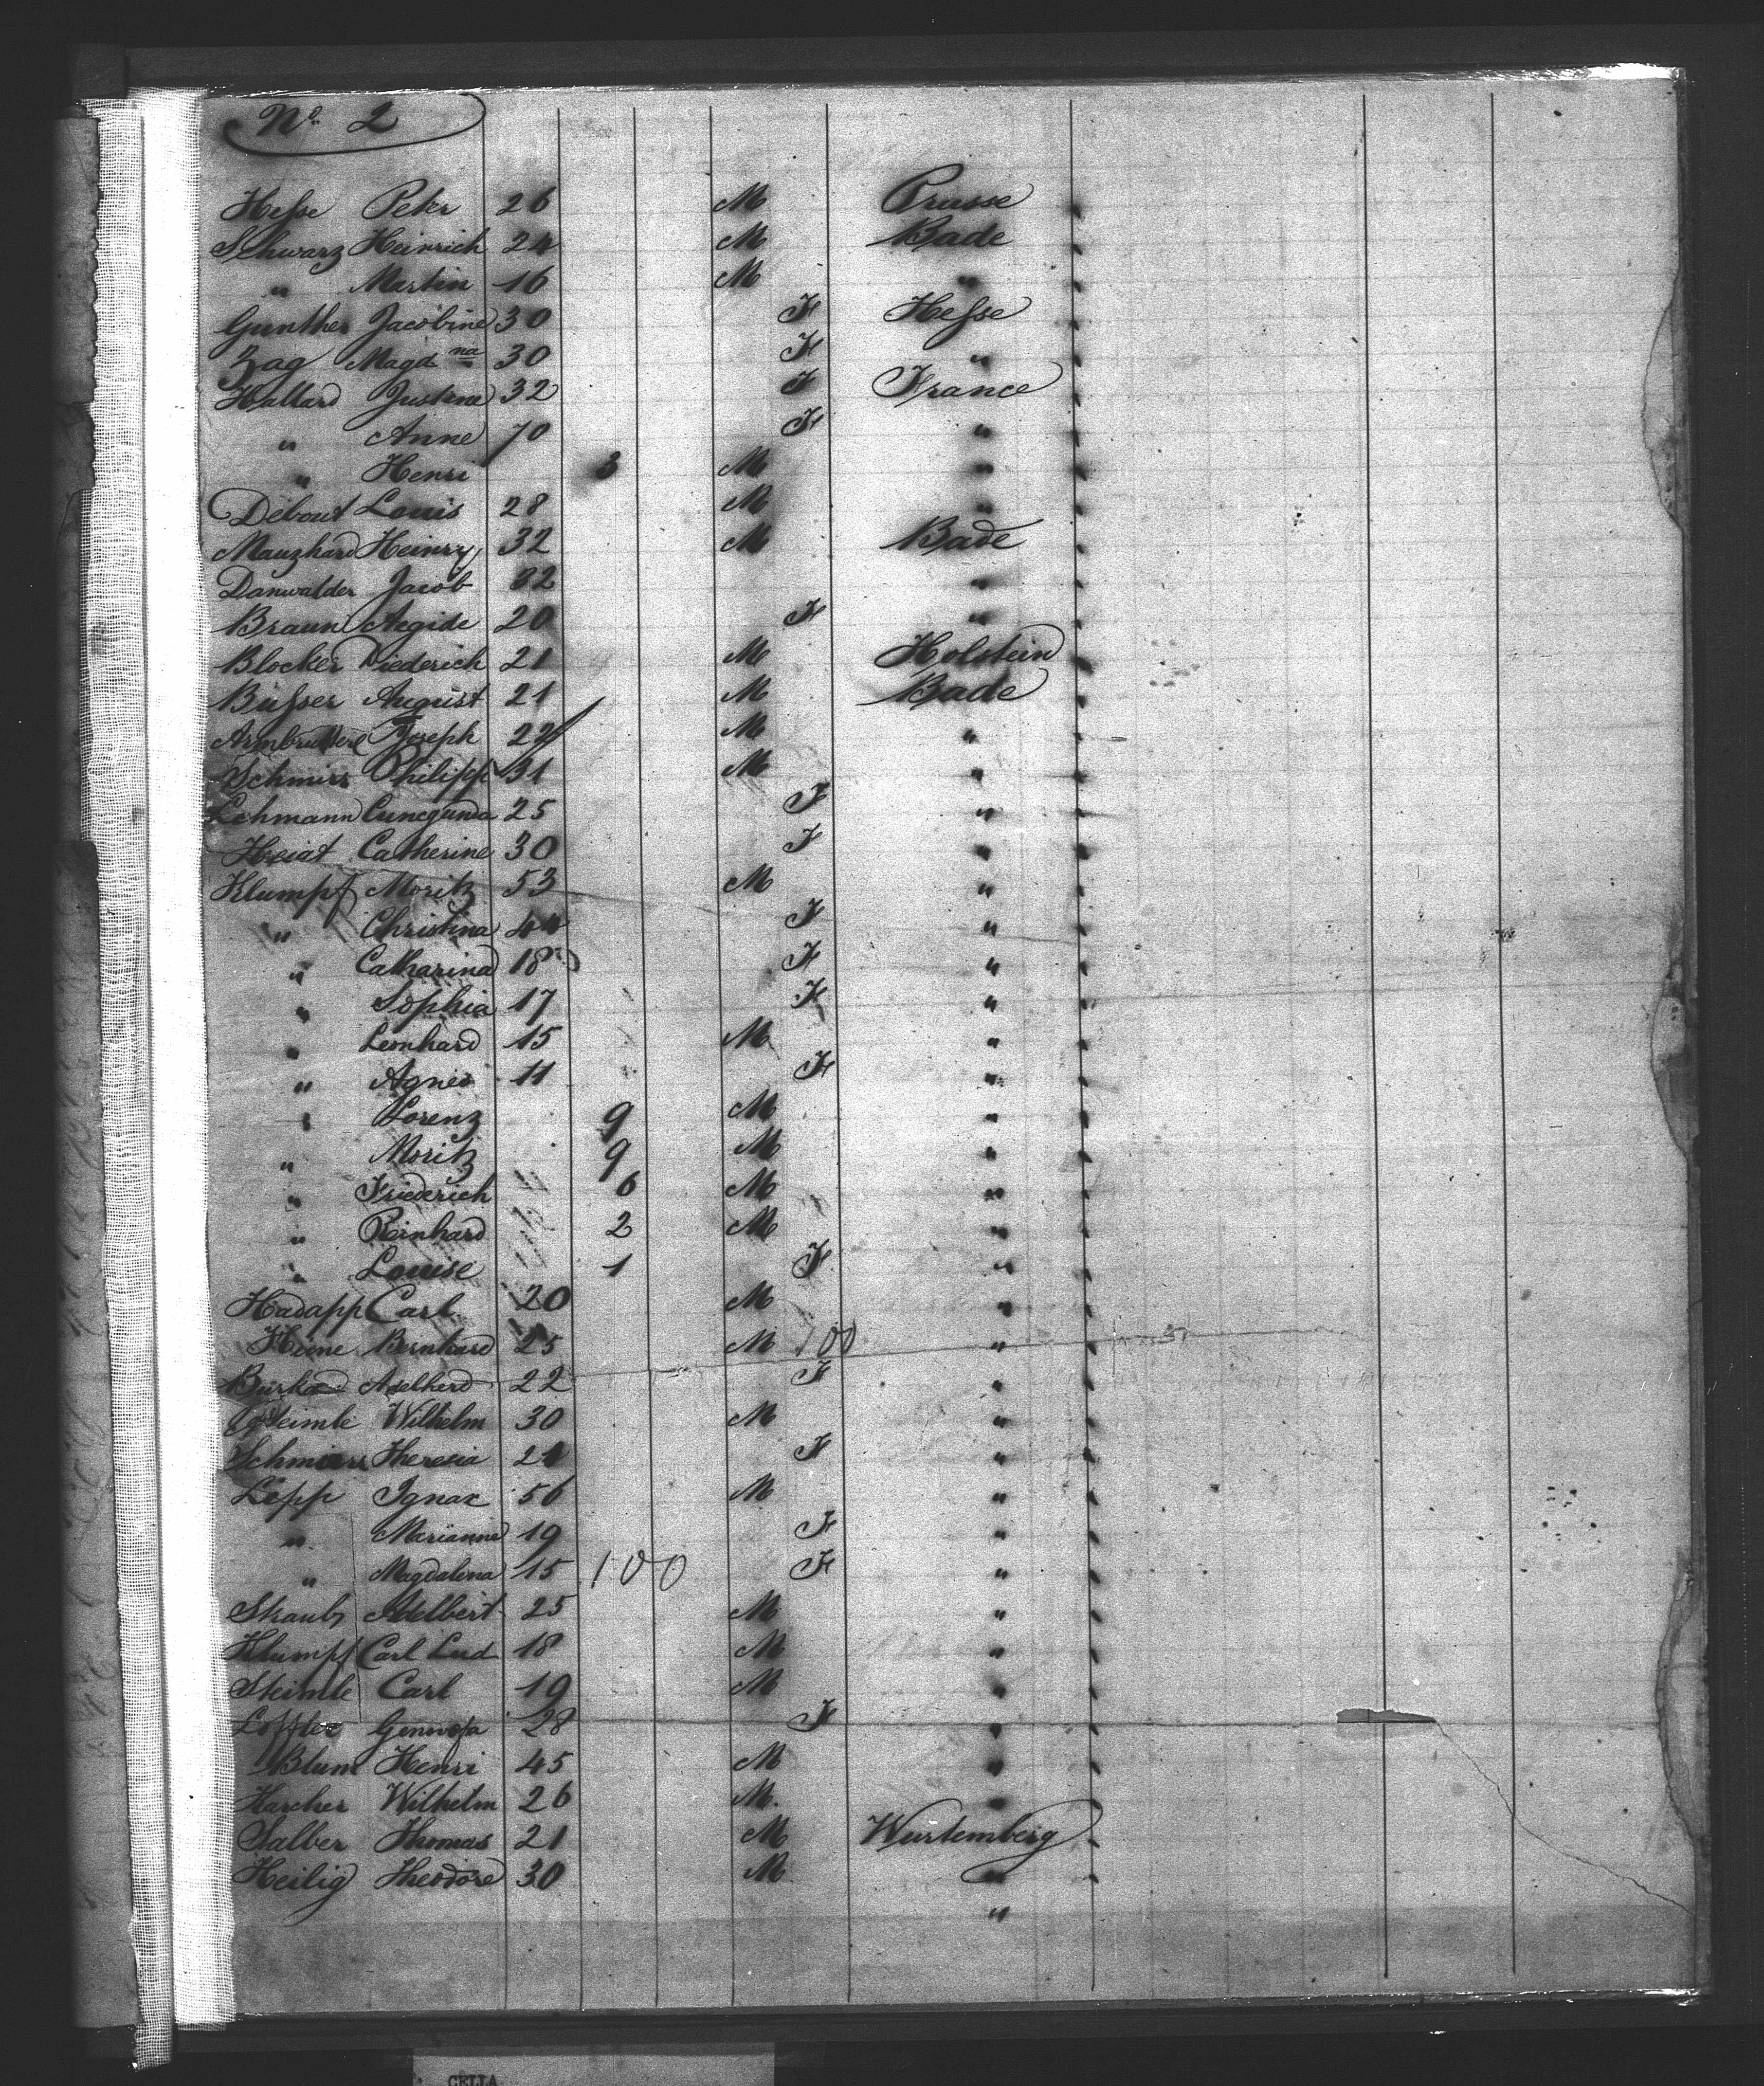 No. 2
Hesse Peter 26 M Prusse
Schwarz Heinrich 24 M Bade
" Martin 16 M "
Gunther Jacobine 30 F Hesse
Zag Magdna 30 F "
Hallard Justine 32 F France
" Anne 70 F "
" Henri 3 M "
Debout Louis 28 M "
Mauzhard Heinry 32 M Bade
Danwalder Jacob 32 "
Braun Aegide 20 F "
Blocker Diederich 21 M Holstein
Busser August 21 M Bade
Joseph 22 M "
Schmirs Philipp 31 M "
Lehmann Cunegunda 25 F "
Catherine 30 F "
Klumpf Moritz 53 M "
" Christina 44 F "
" Catharina 18 F "
" Sophia 17 F "
" Leonhard 15 M "
" Agnes 11 F "
" Lorenz 9 M "
" Moritz 9 M "
" Friederich 6 M "
" Reinhard 2 M "
" Louise 1 F "
Hadapp Carl 20 M "
Bernhard 25 M 100 "
22 F "
Wilhelm 30 M "
Theresia 21 F "
Lepp Ignaz 56 M "
" Marianne 19 F "
" Magdalena 15 100 F "
Straub Adelbert 25 M "
Klumpf Carl Lud 18 M "
Steimle Carl 19 M "
Loffler Genovefa 28 F "
Blum Henri 45 M "
Karcher Wilhelm 26 M. "
Salber Thomas 21 M Wurtemberg
Heilig Theodore 30 M "
"
CELLA